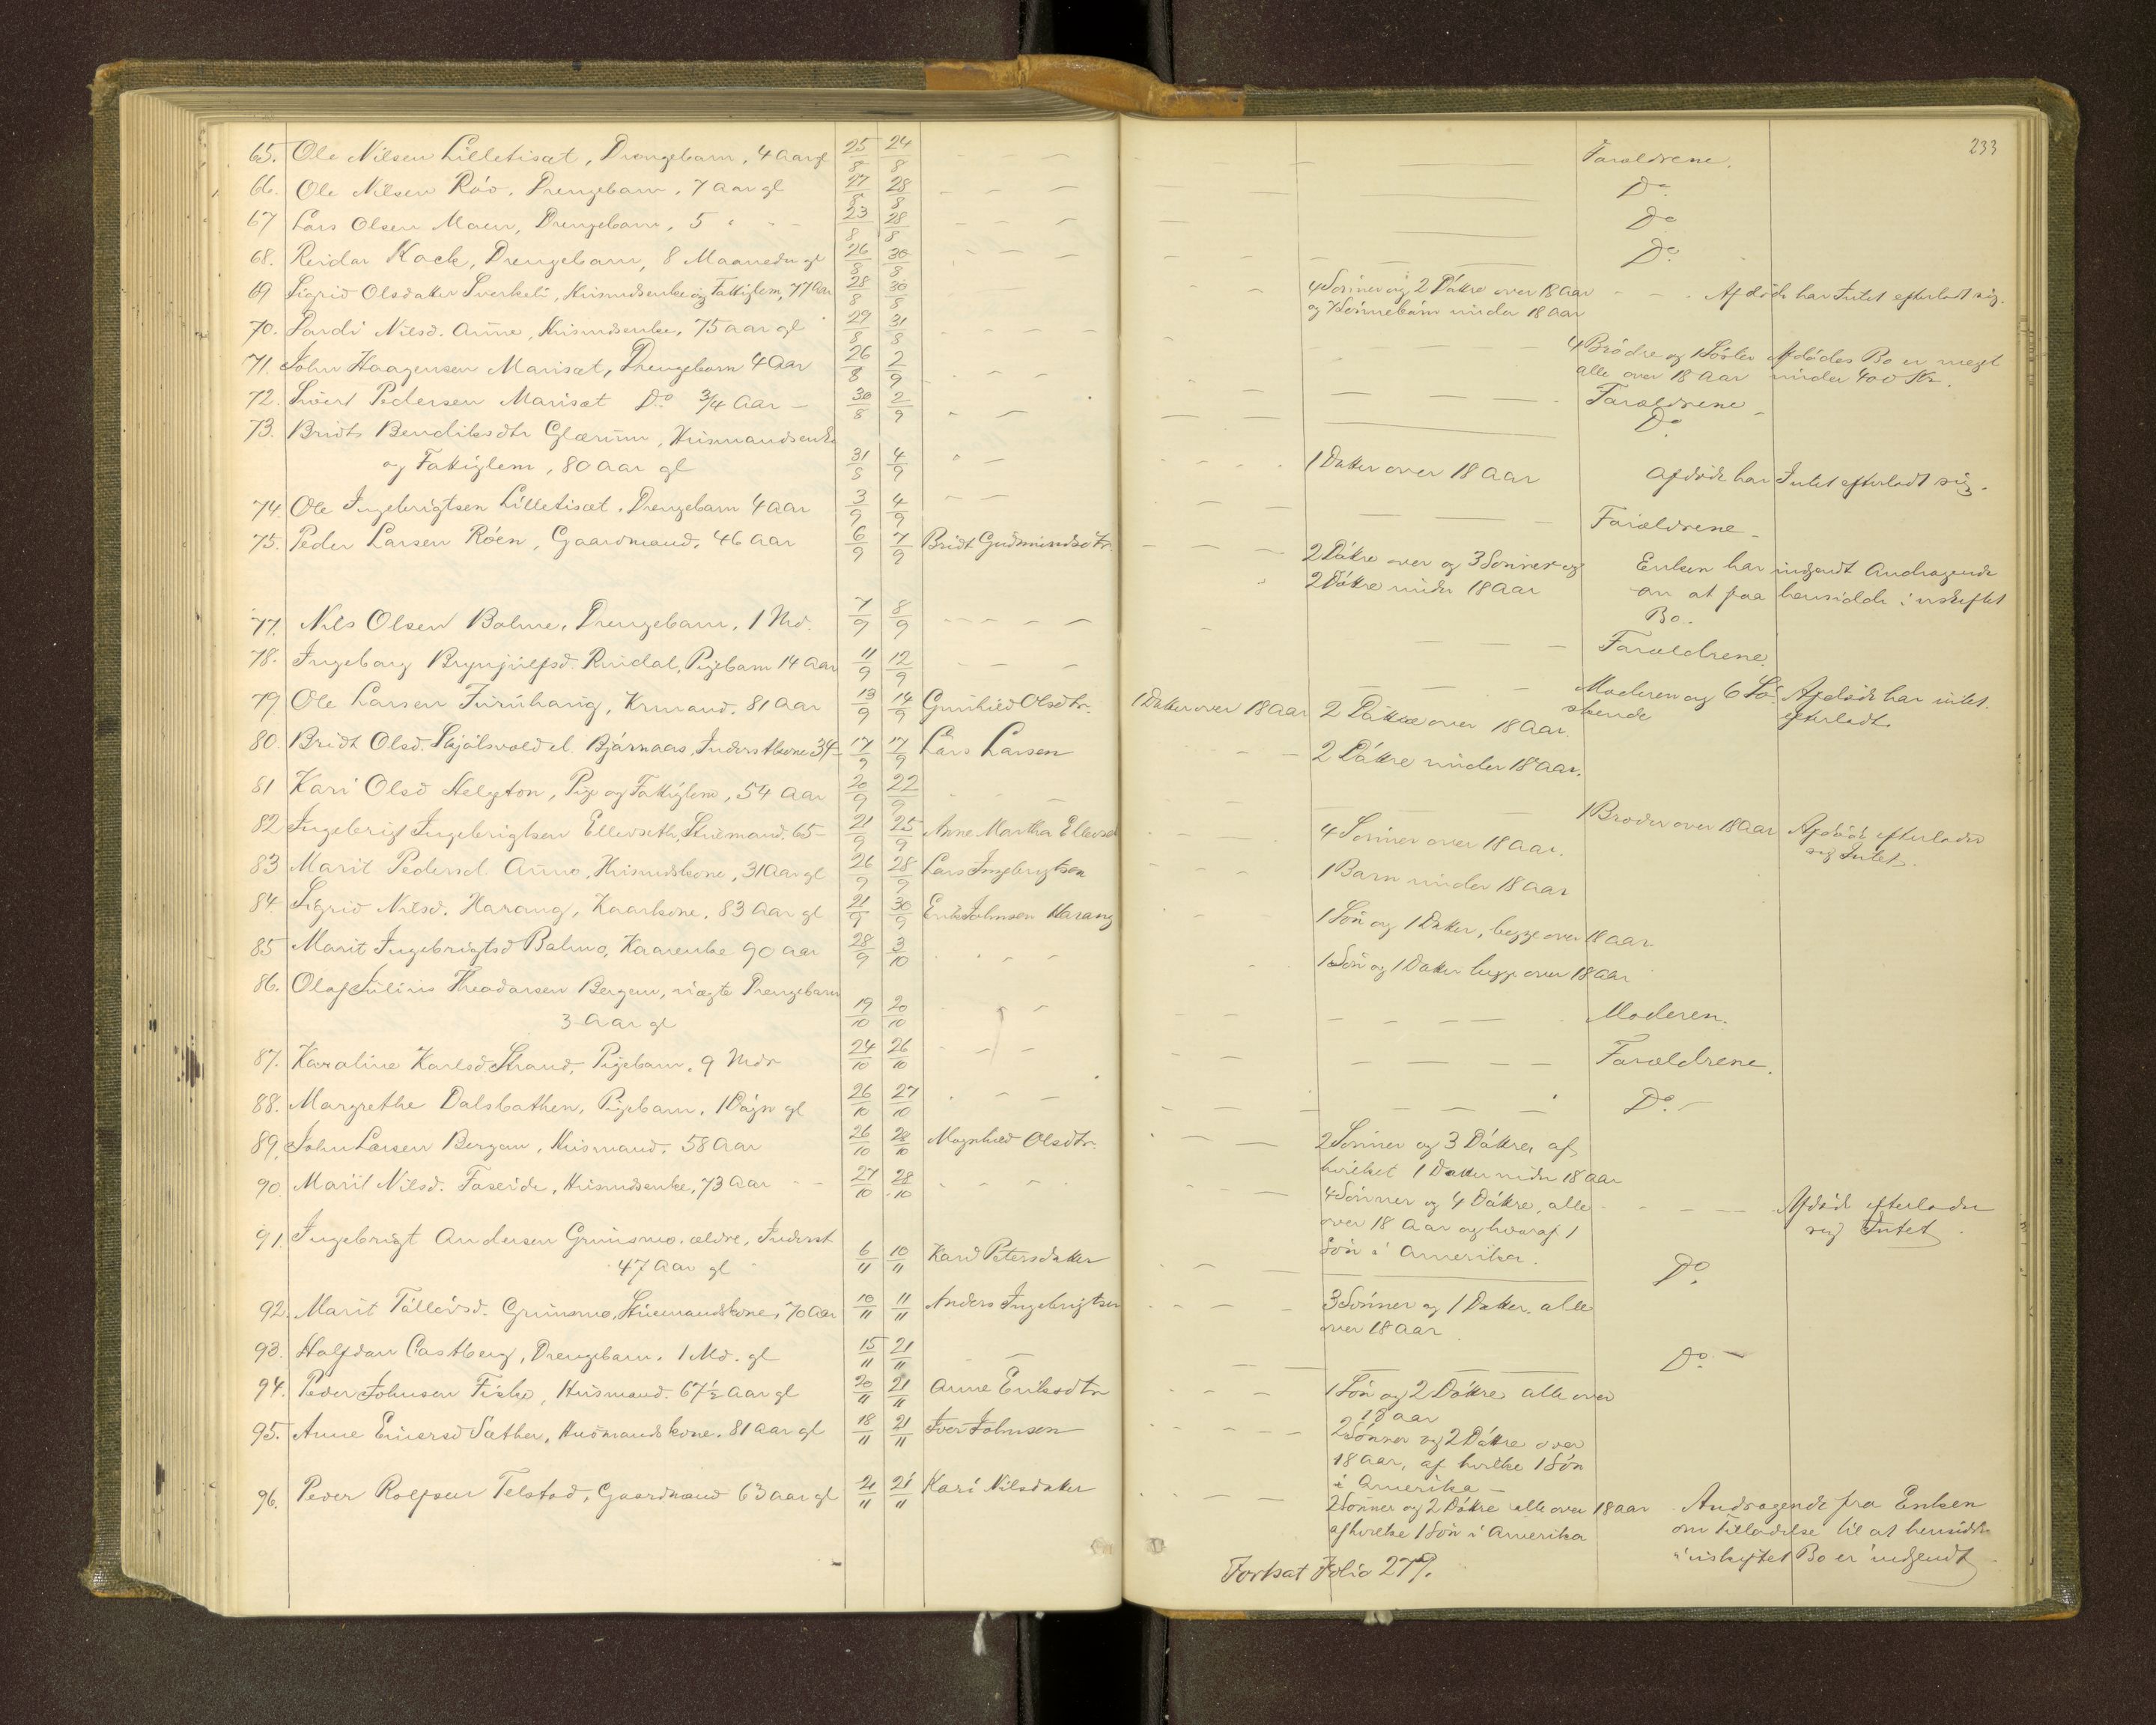 233
65. Ole Nilsen Lilletisæt, Drengebarn, 4 Aar gl 25/8 24/8 Foræeldrene.
66. Ole Nilsen Róv. Drengebarn, 7 Aar gl 27/8 28/8 Do.
67 Lars Olsen Moen, Drengebarn, 5 " - - 23/8 28/8 Do
68. Reidar Kock, Drengebarn, 8 Maaneder gl 26/8 30/8 Do.
69 Sigrid Olsdatter Sverkeli, Husmdsenke og Fattiglem, 77 Aar 28/8 30/8 4 Sönner og 2 Döttre over 18 Aar Afdöde har Intet efterladt sig.
og Sönnebörn under 18 Aar
70. Nilsd. Aune, Husmdsenke, 75 aar gl 29/8 31/8 4 Brödre og 1 Söster Afdödes Bo er meget
alle over 18 Aar under 400 Kr.
71. John Haagensen Marisæt, Drengebarn 4 Aar 26/8 2/9 Foræeldrene
72. Sivert Pedersen Marisæt Do 3/4 Aar - 30/8 2/9 Do
73. Bridt Bendiksdtr Glærum, Husmandsenke
og Fattiglem, 80 Aar gl 31/8 4/9 1 Datter over 18 Aar Afdöde har Intet efterladt sig.
74. Ole Ingebrigtsen Lilletisæt, Drengebarn 4 Aar 3/9 4/9 Foræeldrene
75. Peder Larsen Róen, Gaardmand, 46 Aar 6/9 7/9 Bridt Gudmundsdtr. 2 Döttre over og 3 Sönner og Enken har indsendt Andragende
2 Döttre under 18 Aar om at faa hensidde i uskiftet
Bo.
77. Nils Olsen Bolme, Drengebarn, 1 Md. 7/9 8/9 Foræeldrene.
78. Ingeborg Brynjulfsd. Rindal, Pigebarn 14 Aar 11/9 12/9 Moderen og 6 Sö- Afdöde har intet
skende efterladt.
79. Ole Larsen Furuhaug, Krmand, 81 Aar 13/9 14/9 Gunhild Olsdtr. 1 Datter over 18 Aar 2 Döttre over 18 Aar.
80. Bridt Olsd. Skjölsvold el. Bjórnaas, Inderstkone 34- 17/9 17/9 Lars Larsen 2 Döttre under 18 Aar.
81 Kari Olsd Helgeton, Pige og Fattiglem, 54 Aar 20/9 22/9 1 Broder over 18 Aar Afdöde efterlader
sig Intet.
82 Ingebrigt Ingebrigtsen Ellevseth, Husmand. 65- 21/9 25/9 Anne Martha 4 Sönner over 18 Aar.
83 Marit Pedersd. Aune, Husmdskone, 31 Aar gl 26/9 28/9 Lars Ingebrigtsen 1 Barn under 18 Aar
84. Sigrid Nilsd. Harang, Kaarkone, 83 Aar gl 21/9 30/9 Erik Johnsen Harang 1 Sön og 1 Datter, begge over 18 Aar
85 Marit Ingebrigtsd Bolme, Kaarenke 90 Aar 28/9 3/10 1 Sön og 1 Datter begge over 18 Aar
86. Olaf Julius Theodorsen Bergem, uægte Drengebarn
3 Aar gl 19/10 20/10 Moderen.
87. Karoline Karlsd. Strand, Pigebarn, 9 Mdr 24/10 26/10 Foræeldrene.
88. Margrethe Dalsbakken, Pigebarn, 1 Dögn gl 26/10 27/10 Do. -
89. John Larsen Bergem, Husmand, 58 Aar 26/10 28/10 Magnhild Olsdtr. 2 Sönner og 3 Döttre, af
hvilket 1 Datter under 18 Aar
90. Marit Nilsd. Foseide, Husmdsenke, 73 Aar 27/10 28/10 4 Sönner og 4 Döttre, alle Afdöde efterlader
over 18 Aar og hvoraf 1 sig Intet.
Sön i Amerika.
91. Ingebrigt Andersen Grinsmo ældre, Inderst
47 Aar gl 6/11 10/11 Petersdatter Do.
92. Marit Grinsmo, Husmandskone, 70 Aar 10/11 11/11 Anders Ingebrigtsen 3 Sönner og 1 Datter, alle
over 18 Aar
93. Halfdan Castberg, Drengebarn. 1 Md. gl 15/11 21/11 Do. -
94. Peder Johnsen Fiske, Husmand. 67 1/2 Aar gl 20/11 21/11 Anne Eriksdtr 1 Sön og 2 Döttre alle over
18 Aar
95. Anne Einersd Sæther, Husmandskone. 81 Aar gl 18/11 21/11 Iver Johnsen 2 Sönner og 2 Döttre over
18 Aar, af hvilke 1 Sön
i Amerika -
96. Peder Rolfsen Telstad, Gaardmand 63 Aar gl 21/11 21/11 Kari Nilsdatter 2 Sönner og 2 Döttre alle over 18 Aar Andragende fra Enken
af hvilke 1 Sön i Amerika om Tilladelse til at hensidde
i uskiftet Bo er indsendt
Fortsat Folio 279.